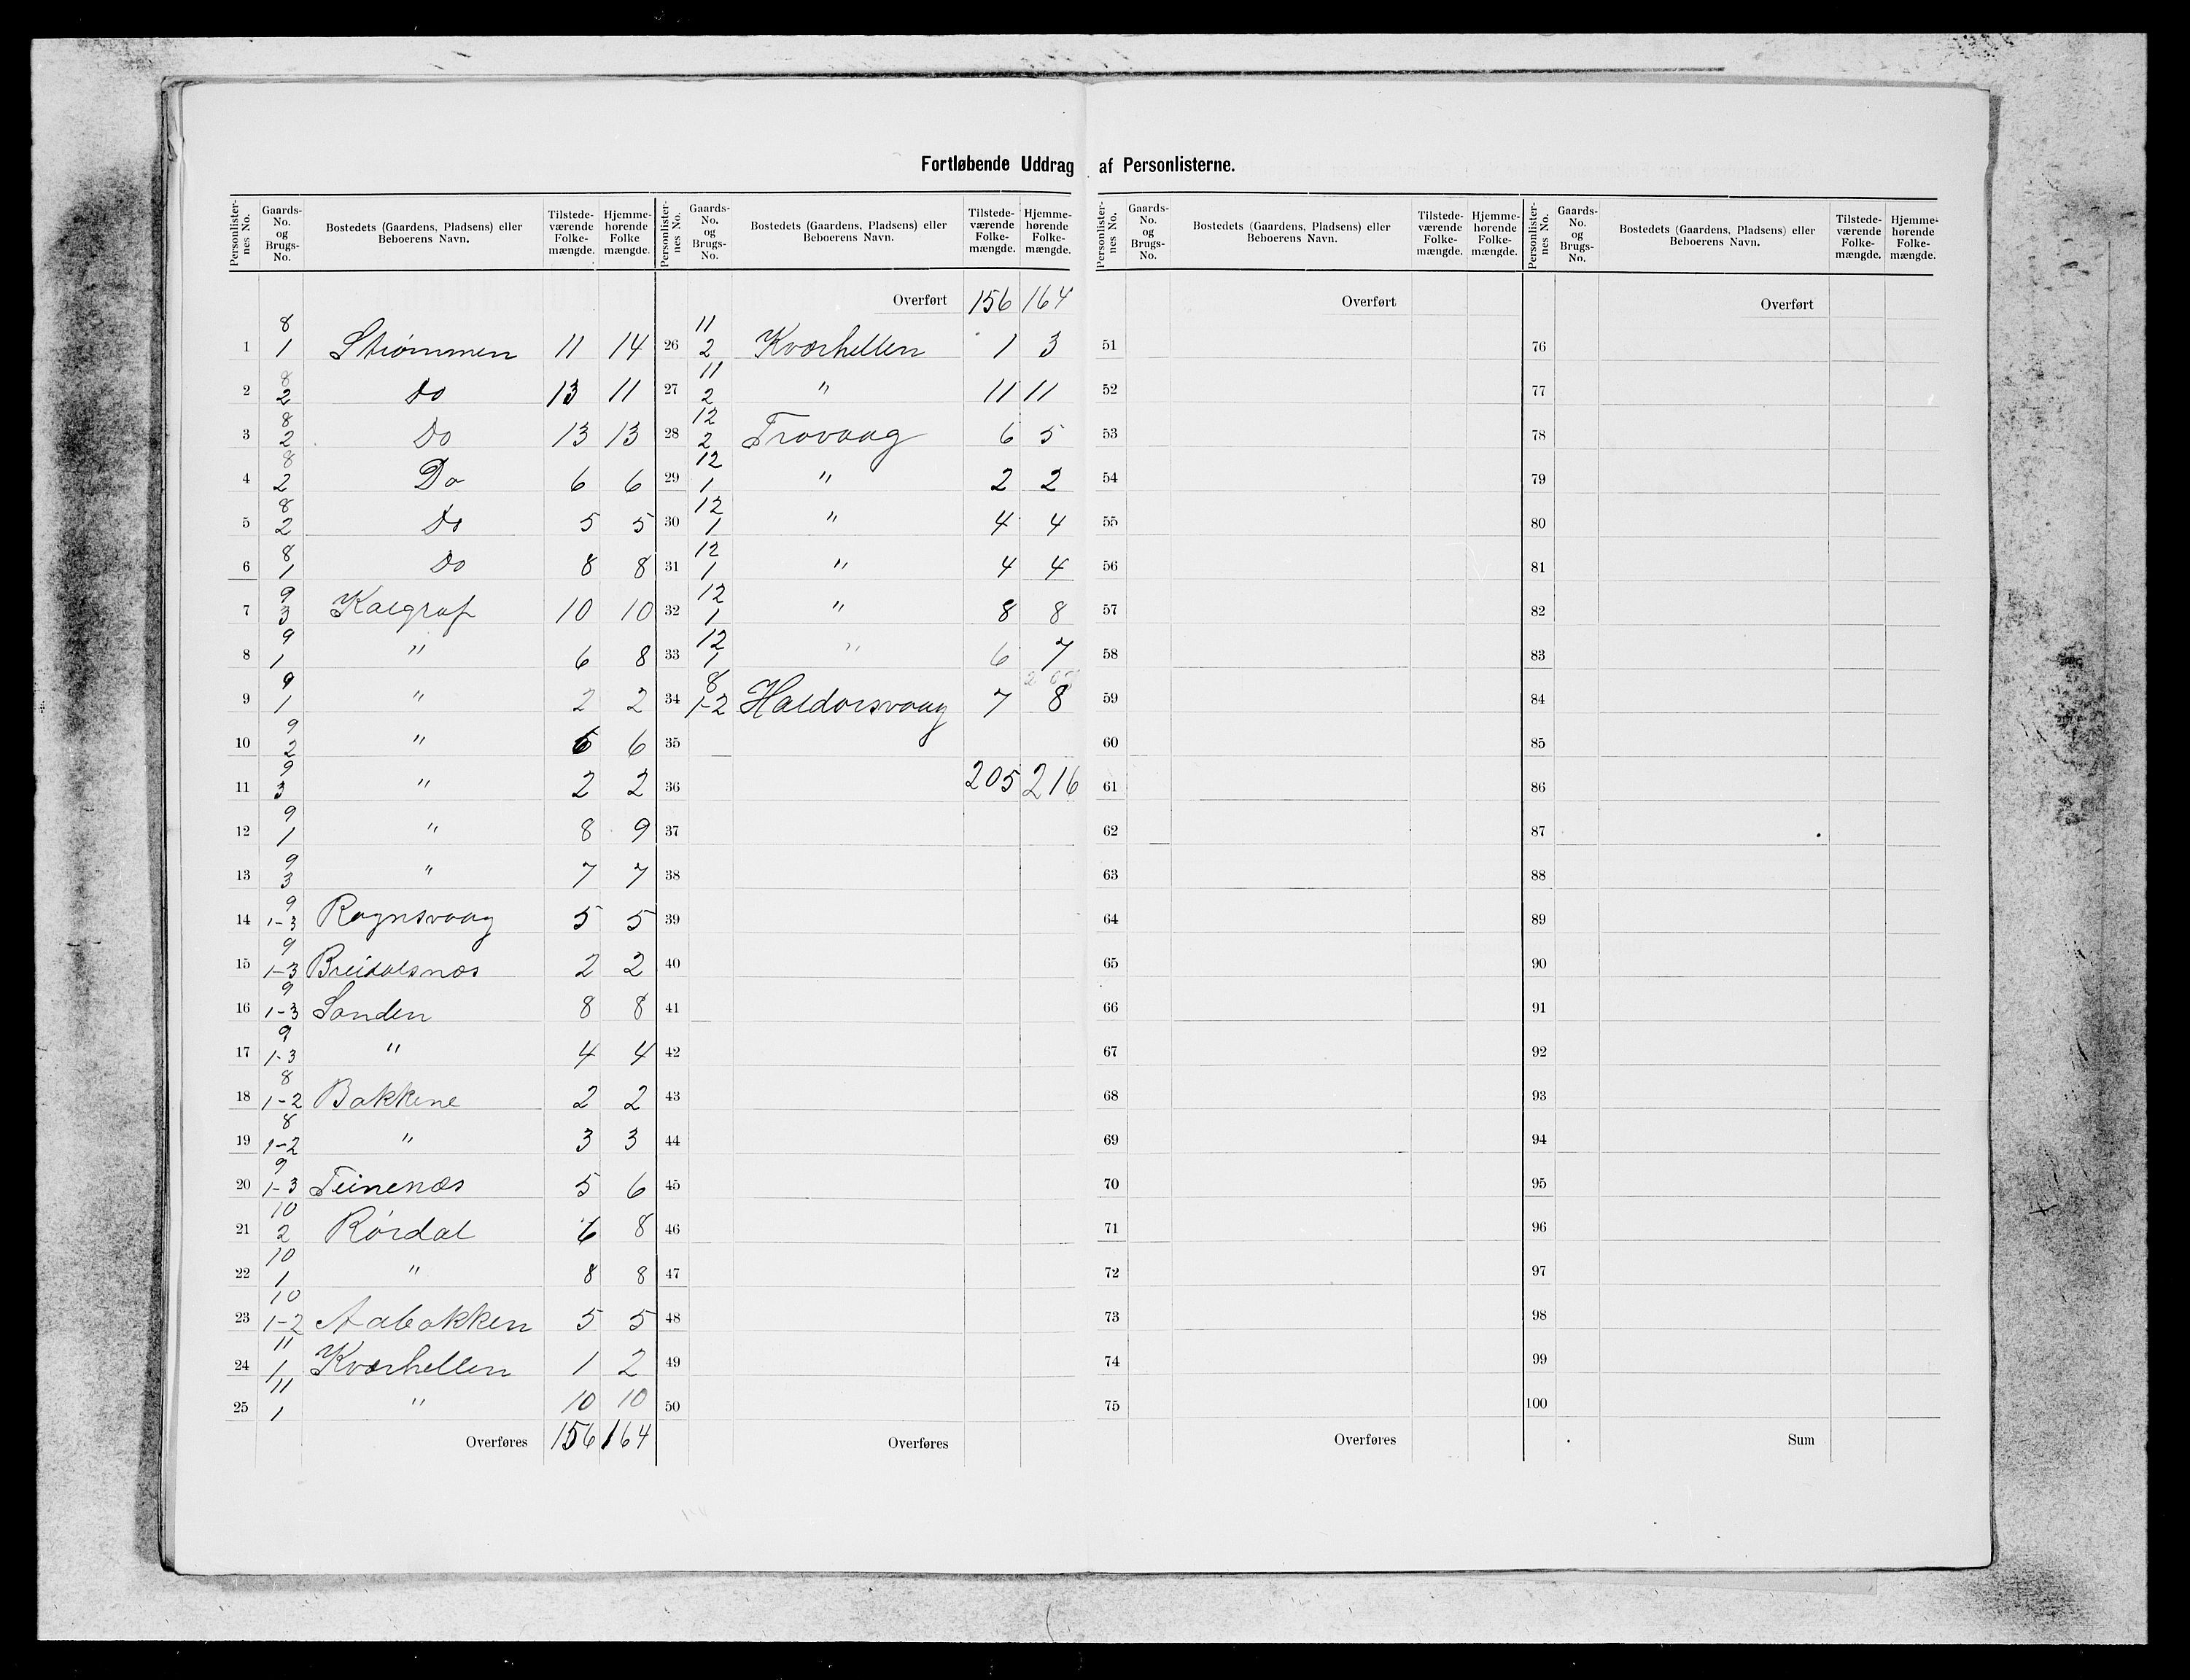 Fortløbende Uddrag af Personlisterne.
Personlister-nes No. | Gaards-No. og Brugs-No. | Bostedets (Gaardens, Pladsens) eller Beboerens Navn. | Tilstede-værende Folke-mængde. | Hjemme-hørende Folke mængde.
1 | 8 1 | Strømmen | 11 | 14
2 | 8 2 | Do | 13 | 11
3 | 8 2 | Do | 13 | 13
4 | 8 2 | Do | 6 | 6
5 | 8 2 | Do | 5 | 5
6 | 8 1 | Do | 8 | 8
7 | 9 3 | Kalgraf | 10 | 10
8 | 9 1 | " | 6 | 8
9 | 9 1 | " | 2 | 2
10 | 9 2 | " | 6 | 6
11 | 9 3 | " | 2 | 2
12 | 9 1 | " | 8 | 9
13 | 9 3 | " | 7 | 7
14 | 9 1-3 | Ragnsvaag | 5 | 5
15 | 9 1-3 | Breidalsnæs | 2 | 2
16 | 9 1-3 | Sanden | 8 | 8
17 | 9 1-3 | " | 4 | 4
18 | 8 1-2 | Bakkene | 2 | 2
19 | 8 1-2 | " | 3 | 3
20 | 9 1-3 | Teinenæs | 5 | 6
21 | 10 2 | Rørdal | 6 | 8
22 | 10 1 | " | 8 | 8
23 | 10 1-2 | Aabakken | 5 | 5
24 | 11 1 | Kværhellen | 1 | 2
25 | 11 1 | " | 10 | 10
Overføres 156 164
Personlister-nes No. | Gaards-No. og Brugs-No. | Bostedets (Gaardens, Pladsens) eller Beboerens Navn. | Tilstede-værende Folke-mængde. | Hjemme-hørende Folke-mængde.
Overført 156 164
26 | 11 2 | Kværhellen | 1 | 3
27 | 11 2 | " | 11 | 11
28 | 12 2 | Trovaag | 6 | 5
29 | 12 1 | " | 2 | 2
30 | 12 1 | " | 4 | 4
31 | 12 1 | " | 4 | 4
32 | 12 1 | " | 8 | 8
33 | 12 1 | " | 6 | 7
34 | 8 1-2 | Haldorsvaag | 7 | 8
35
36 205 216
37
38
39
40
41
42
43
44
45
46
47
48
49
50
Overføres
Personlister-nes No. | Gaards-No. og Brugs-No. | Bostedets (Gaardens, Pladsens) eller Beboerens Navn. | Tilstede-værende Folke-mængde. | Hjemme-hørende Folke-mængde.
Overført
51
52
53
54
55
56
57
58
59
60
61
62
63
64
65
66
67
68
69
70
71
72
73
74
75
Overføres
Personlister-nes No. | Gaards-No. og Brugs-No. | Bostedets (Gaardens, Pladsens) eller Beboerens Navn. | Tilstede-værende Folke-mængde. | Hjemme-hørende Folke-mængde.
Overført
76
77
78
79
80
81
82
83
84
85
86
87
88
89
90
91
92
93
94
95
96
97
98
99
100
Sum